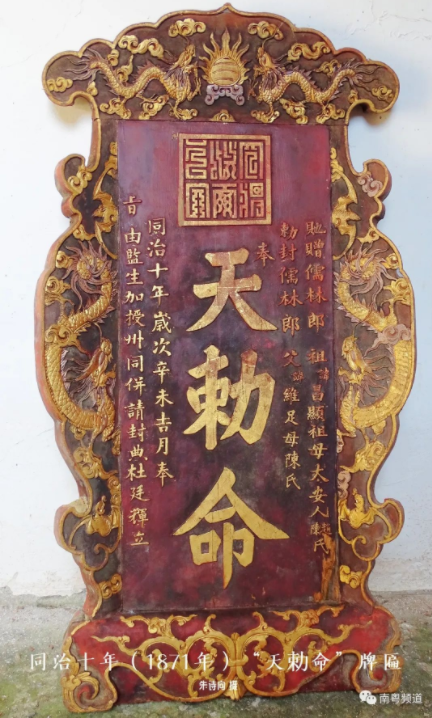 貤贈儒林郎 祖諱昌顯祖母太安人氏
勅封儒林郎 父諱維足母陳氏
奉
天勅命
同治十年歲次辛未吉月奉
旨由監生加授州同併請封典杜廷輝立
同治十年（1871年）“天勅命”牌匾
朱诗 摄
南粤频道